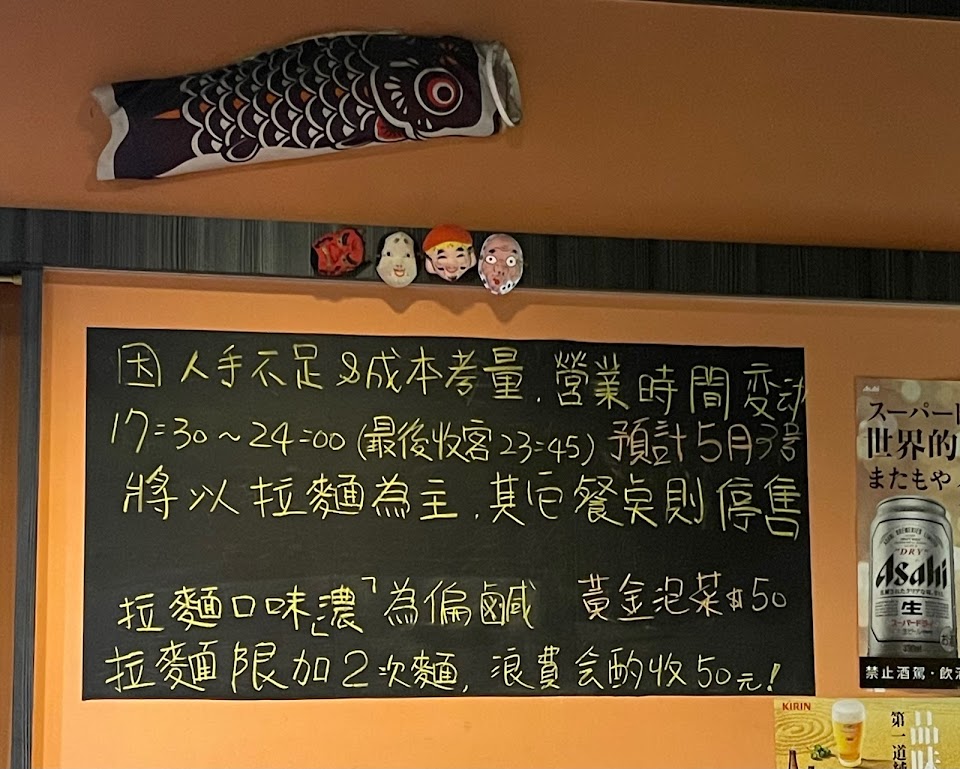 因人手不足&成本考量.營業時間變动
17:30~24:00(最後收客23:45)預計5月3号
將以拉麵為主.其它餐桌則停售
拉麵口味「濃」為偏鹹 黃金泡菜$50
拉麵限加2次麵,浪費会酌收50元!
Asahi
スーパード
世界的
またもや
DRY
Asahi
生
スーパードライ
禁止酒駕・飲酒
KIRIN
第一道
品味